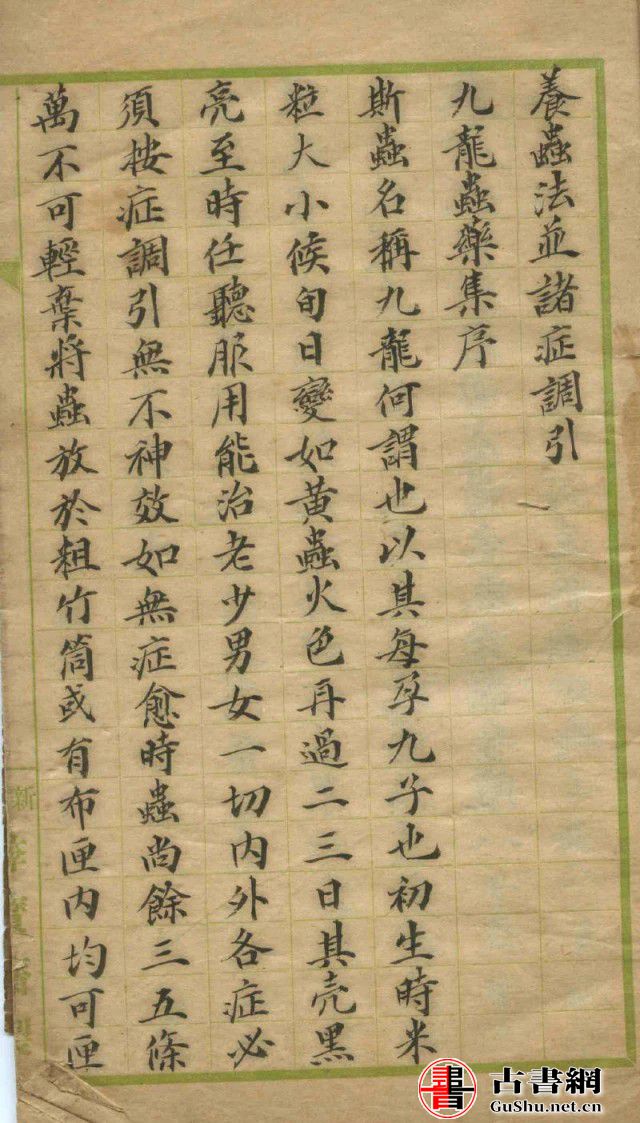 養蟲法並諸症調引
九龍蟲藥集序
斯蟲名稱九龍何謂也以其每孕九子也初生時米
粒大小候旬日變如黃蟲火色再過二三日其壳黑
亮至時任聽服用能治老少男女一切內外各症必
須按症調引無不神效如無症愈時蟲尚餘三五條
萬不可輕棄將蟲放於粗竹筒或有布匣內均可匣
新
書 古書網
GuShu.net.cn